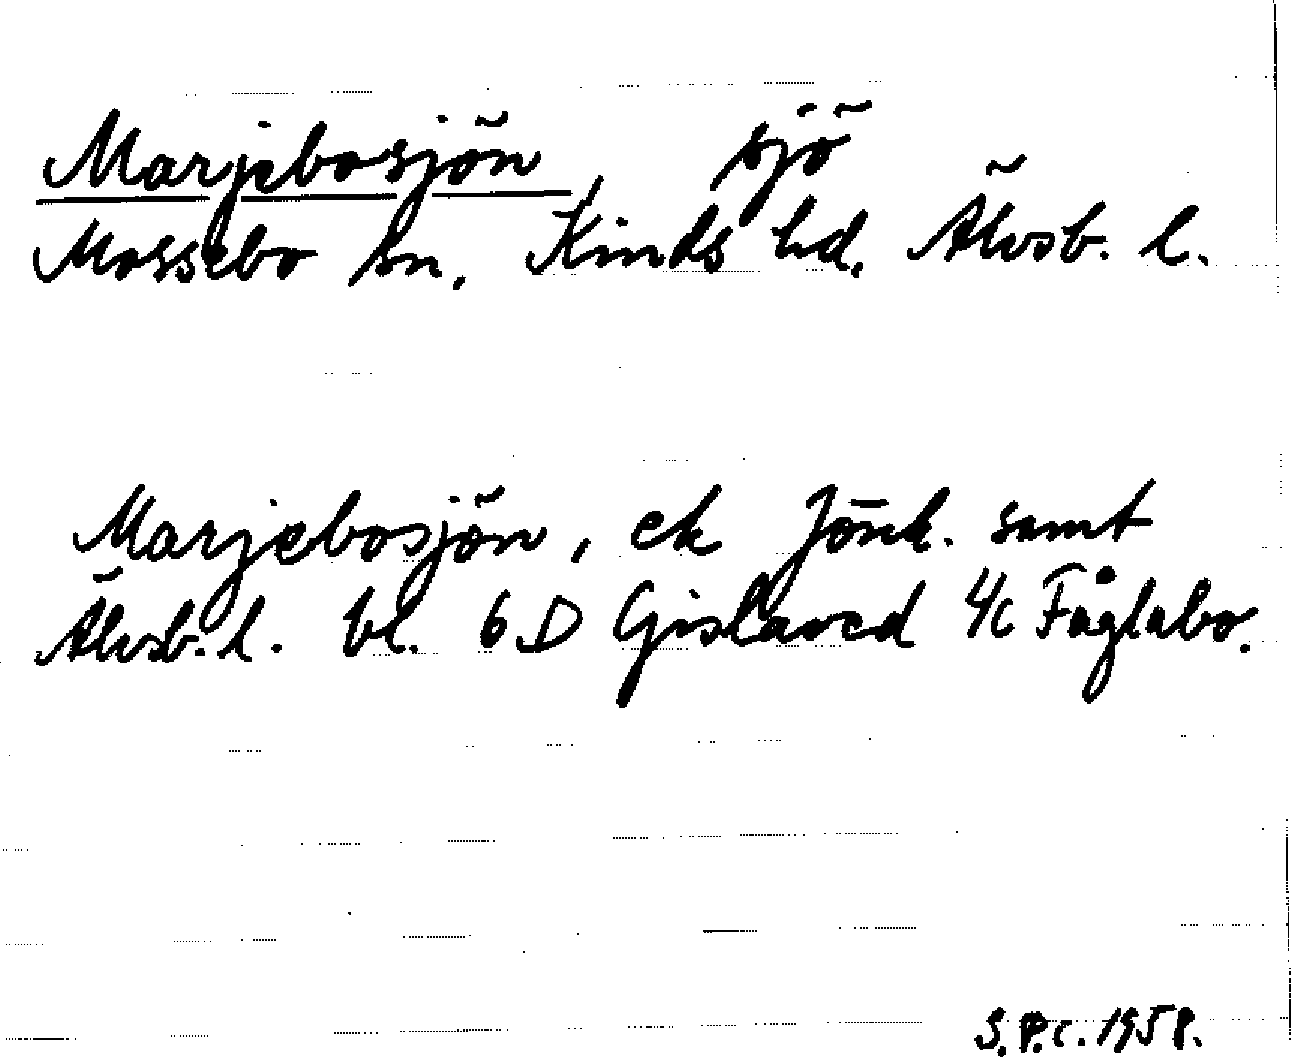 Marjebosjön, sjö
Mossebo sn. Kinds hd. Älvsb. l.
Marjebosjön, ek Jönk. samt
Älvsb. l. bl. 6D Gislaved 4c Fåglabo.
S.P.C. 1958.